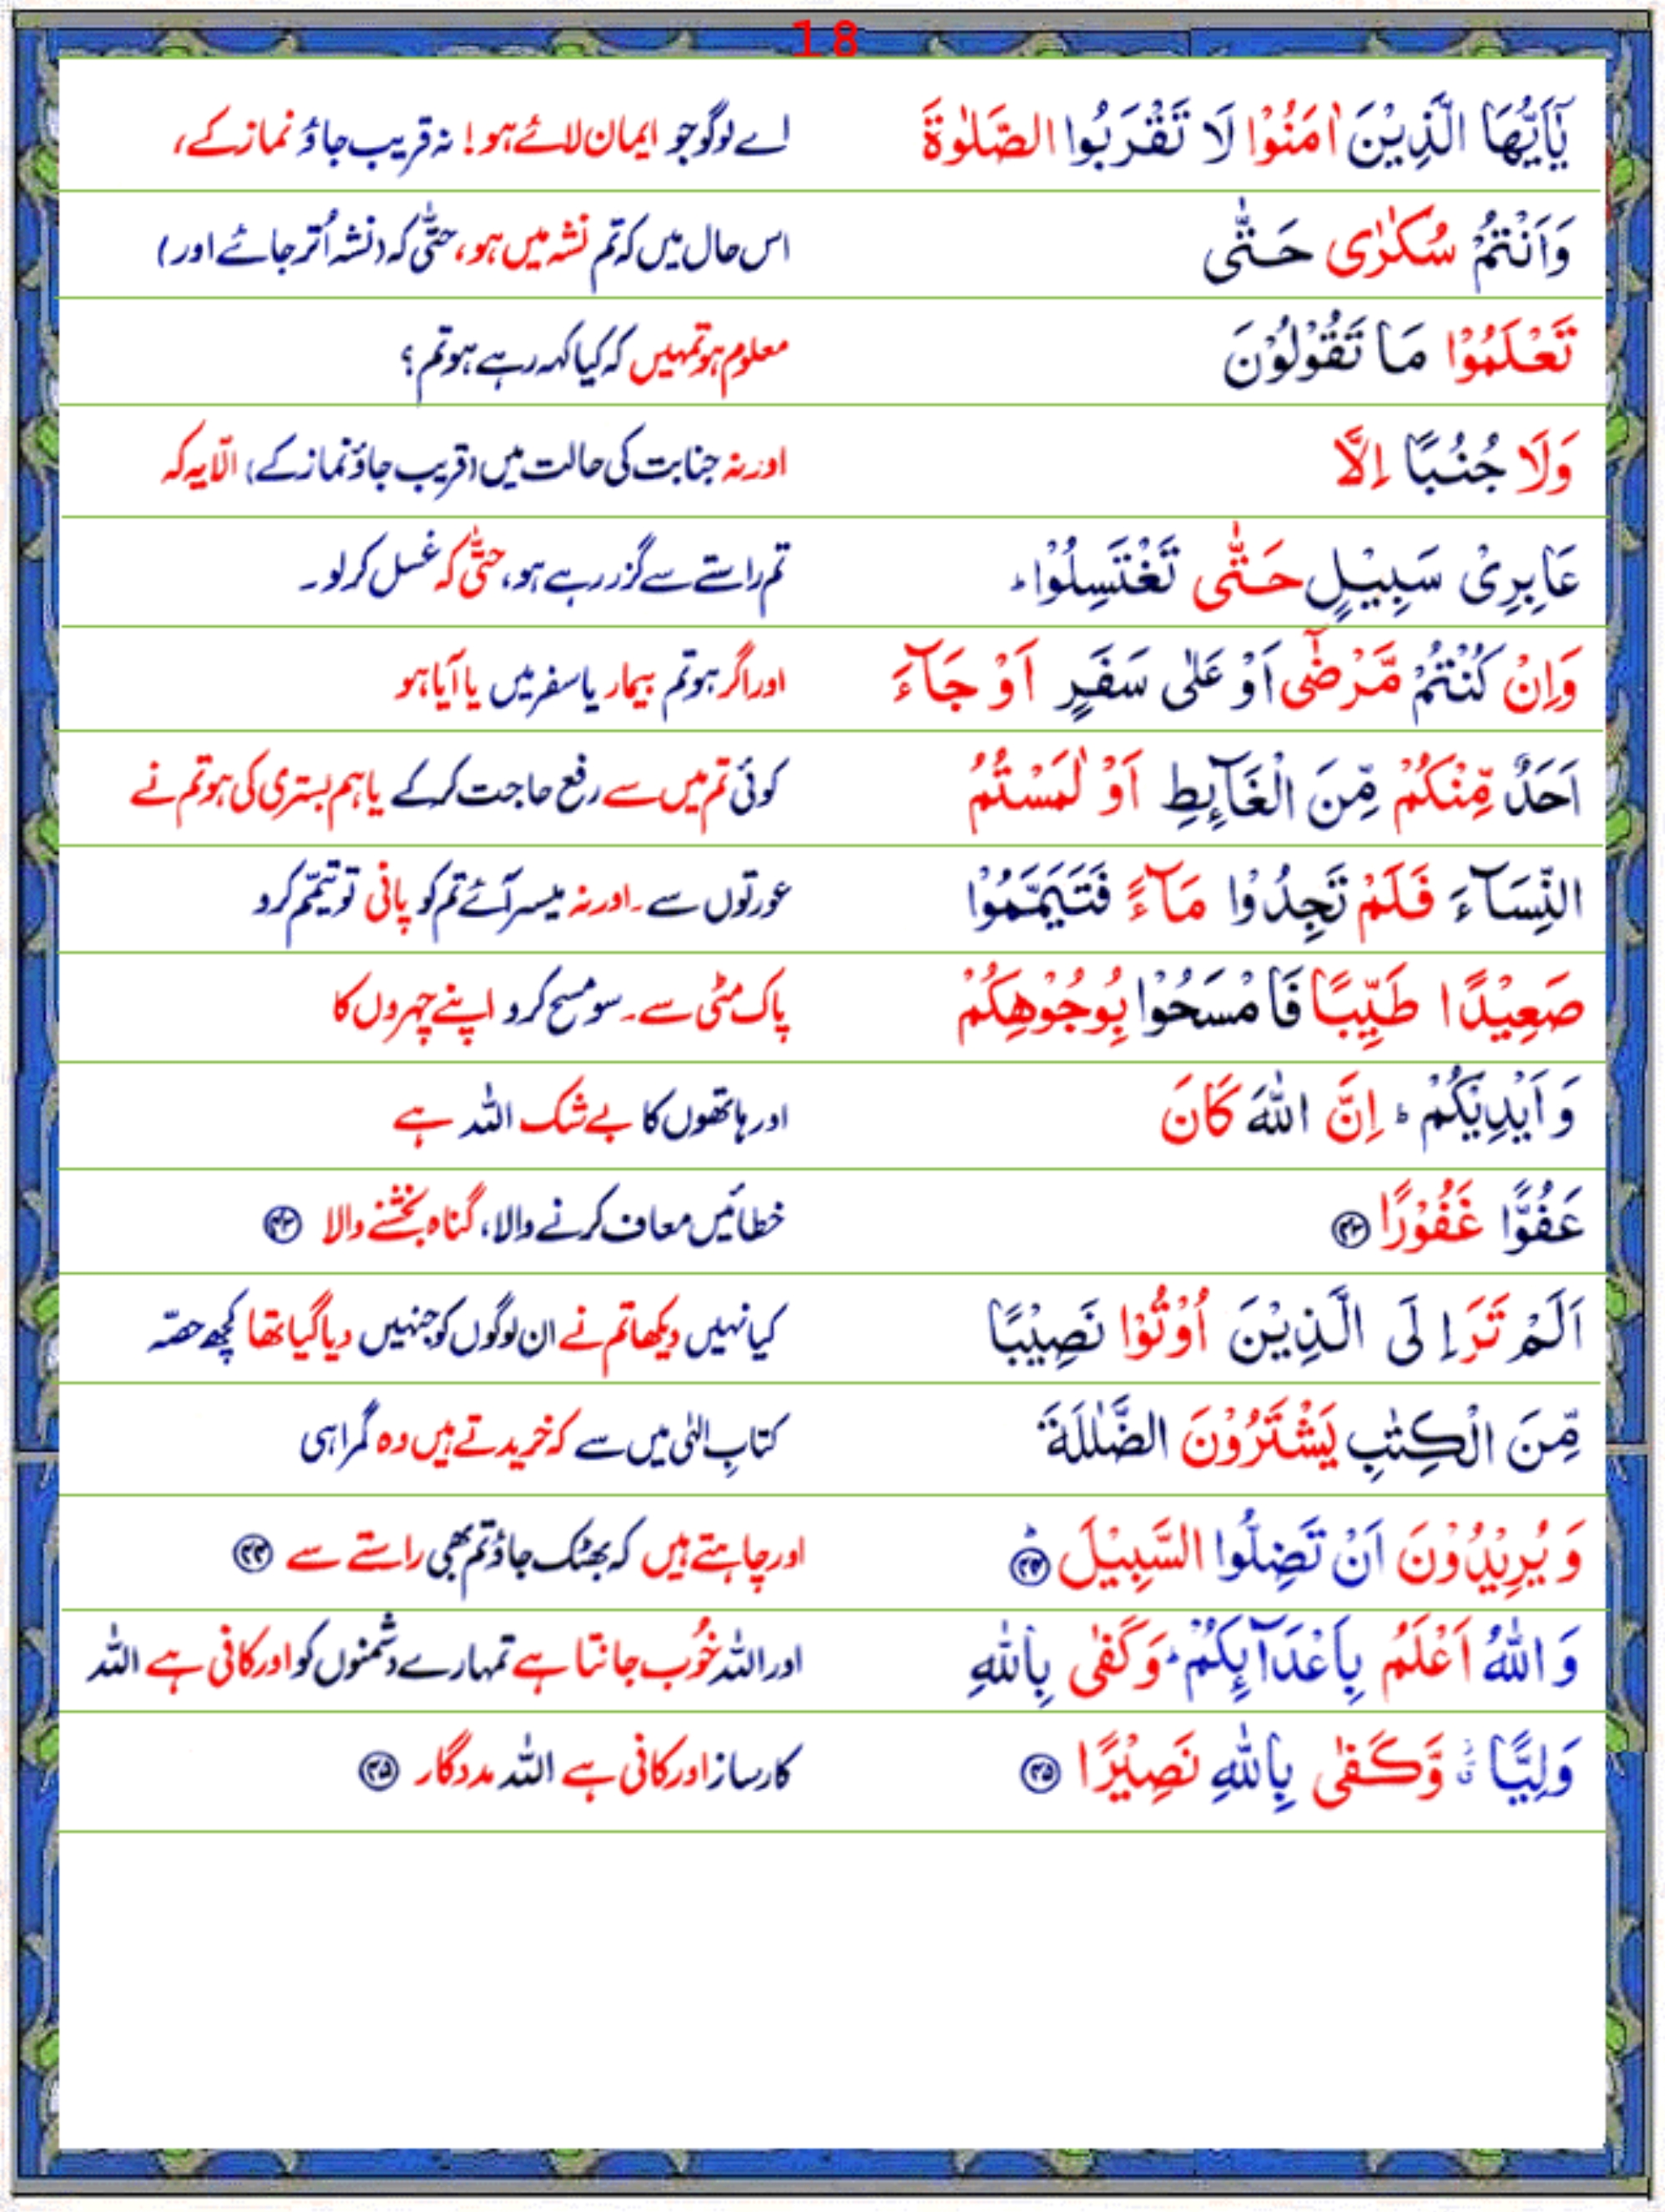 18
يٰۤاَيُّهَا الَّذِيْنَ اٰمَنُوْا لَا تَقْرَبُوا الصَّلٰوةَ اے لوگو جو ایمان لائے ہو! نہ قریب جاؤ نماز کے،
وَاَنْتُمْ سُكٰرٰى حَتّٰى اس حال میں کہ تم نشہ میں ہو، حتّٰی کہ (نشہ اُتر جائے اور)
تَعْلَمُوْا مَا تَقُوْلُوْنَ معلوم ہو تمہیں کہ کیا کہہ رہے ہو تم؟
وَلَا جُنُبًا اِلَّا اور نہ جنابت کی حالت میں (قریب جاؤ نماز کے) الّا یہ کہ
عَابِرِىْ سَبِيْلٍ حَتّٰى تَغْتَسِلُوْا ؕ تم راستے سے گزر رہے ہو، حتّٰی کہ غسل کر لو۔
وَاِنْ كُنْتُمْ مَّرْضٰۤى اَوْ عَلٰى سَفَرٍ اَوْ جَآءَ اور اگر ہو تم بیمار یا سفر میں یا آیا ہو
اَحَدٌ مِّنْكُمْ مِّنَ الْغَآىِٕطِ اَوْ لٰمَسْتُمُ کوئی تم میں سے رفع حاجت کر کے یا ہم بستری کی ہو تم نے
النِّسَآءَ فَلَمْ تَجِدُوْا مَآءً فَتَيَمَّمُوْا عورتوں سے۔ اور نہ میسر آئے تم کو پانی تو تیمّم کرو
صَعِيْدًا طَيِّبًا فَامْسَحُوْا بِوُجُوْهِكُمْ پاک مٹی سے۔ سو مسح کرو اپنے چہروں کا
وَاَيْدِيْكُمْ ؕ اِنَّ اللّٰهَ كَانَ اور ہاتھوں کا بے شک اللہ ہے
عَفُوًّا غَفُوْرًا ﴿۴۳﴾ خطائیں معاف کرنے والا، گناہ بخشنے والا ﴿۴۳﴾
اَلَمْ تَرَ اِلَى الَّذِيْنَ اُوْتُوْا نَصِيْبًا کیا نہیں دیکھا تم نے ان لوگوں کو جنہیں دیا گیا تھا کچھ حصّہ
مِّنَ الْكِتٰبِ يَشْتَرُوْنَ الضَّلٰلَةَ کتابِ الٰہی میں سے کہ خریدتے ہیں وہ گمراہی
وَيُرِيْدُوْنَ اَنْ تَضِلُّوا السَّبِيْلَ ؕ ﴿۴۴﴾ اور چاہتے ہیں کہ بھٹک جاؤ تم بھی راستے سے ﴿۴۴﴾
وَاللّٰهُ اَعْلَمُ بِاَعْدَآىِٕكُمْ ؕ وَكَفٰى بِاللّٰهِ اور اللہ خُوب جانتا ہے تمہارے دشمنوں کو اور کافی ہے اللہ
وَلِيًّا ۙ وَّكَفٰى بِاللّٰهِ نَصِيْرًا ﴿۴۵﴾ کارساز اور کافی ہے اللہ مددگار ﴿۴۵﴾